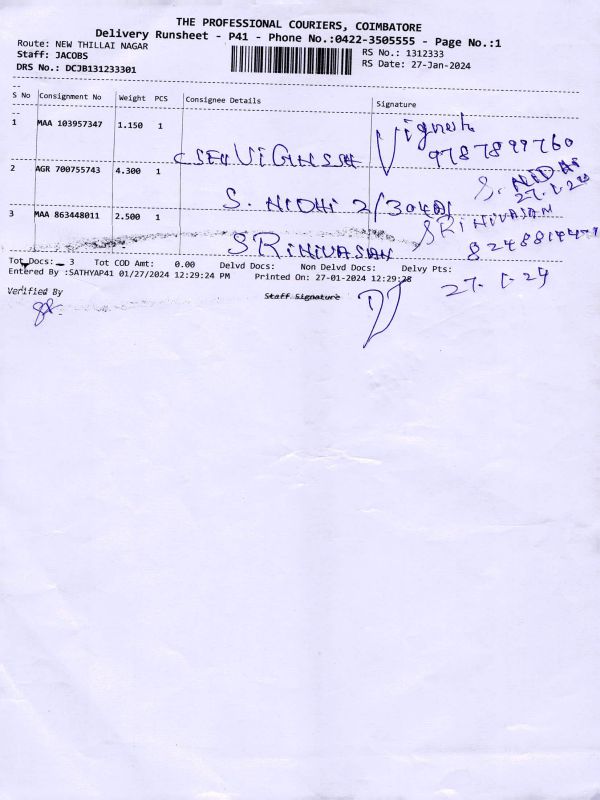 THE PROFESSIONAL COURIERS, COIMBATORE
Delivery Runsheet - P41 - Phone No.:0422-3505555 - Page No.:1
Route: NEW THILLAI NAGAR
Staff: JACOBS
DRS No.: DCJB131233301
RS No.: 1312333
RS Date: 27-Jan-2024
S No Consignment No Weight PCS Consignee Details Signature
1 MAA 103957347 1.150 1 Vignesh
9787899760
2 AGR 700755743 4.300 1 S. NIDHI 2/304 S.
3 MAA 863448011 2.500 1 SRINIVASAN SRINIVASAN
Tot Docs: 3 Tot COD Amt: 0.00 Delvd Docs: Non Delvd Docs: Delvy Pts:
Entered By :SATHYAP41 01/27/2024 12:29:24 PM Printed On: 27-01-2024 12:29:28
27.1.24
Verified By Staff Signature